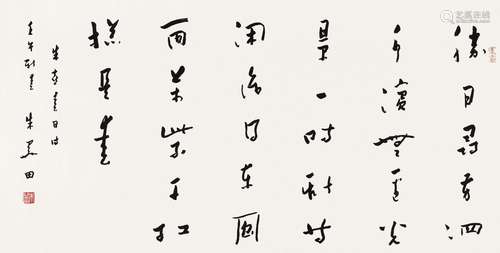 勝日尋芳泗
水濱無邊光
景一時新等
閑識得東風
面萬紫千紅
總是春
朱熹春日詩
壬午 朱关田
艺狐在线